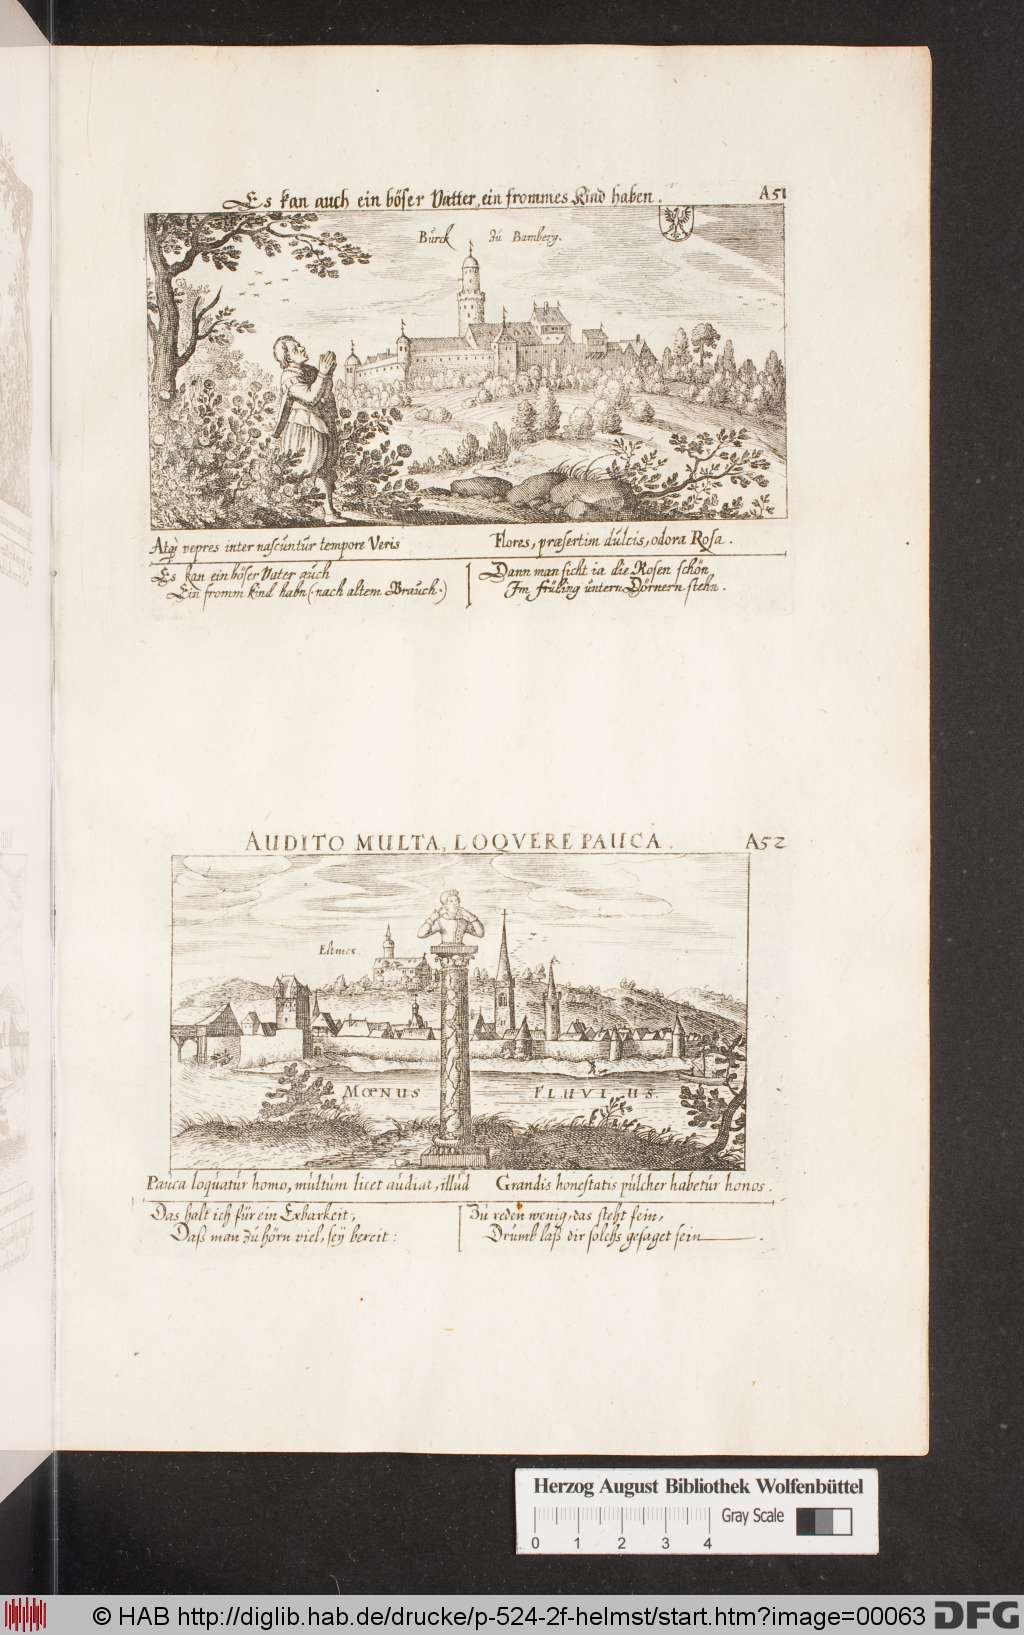 Es kan auch ein böser Vatter, ein frommes Kind haben.
A51
Bürck zú Bamberg.
Atq; vepres inter nascúntúr tempore Veris Flores, præsertim dúlcis, odora Rosa.
Es kan ein böser Vater aúch
Ein fromm kind habn (nach altem Braúch.)
Dann man sicht ia die Rosen schön,
Im früling úntern Dörnern stehn.
AUDITO MULTA, LOQVERE PAUCA.
A52
Eltman
MŒNUS FLUVIUS.
Paúca loqúatúr homo, múltúm licet aúdiat, illúd Grandis honestatis púlcher habetúr honos.
Das halt ich für ein Erbarkeit,
Daß man zú hörn viel, seÿ bereit:
Zú reden wenig, das steht fein,
Drúmb laß dir solchs gesaget sein.
Herzog August Bibliothek Wolfenbüttel
0 1 2 3 4
Gray Scale
© HAB http://diglib.hab.de/drucke/p-524-2f-helmst/start.htm?image=00063
DFG